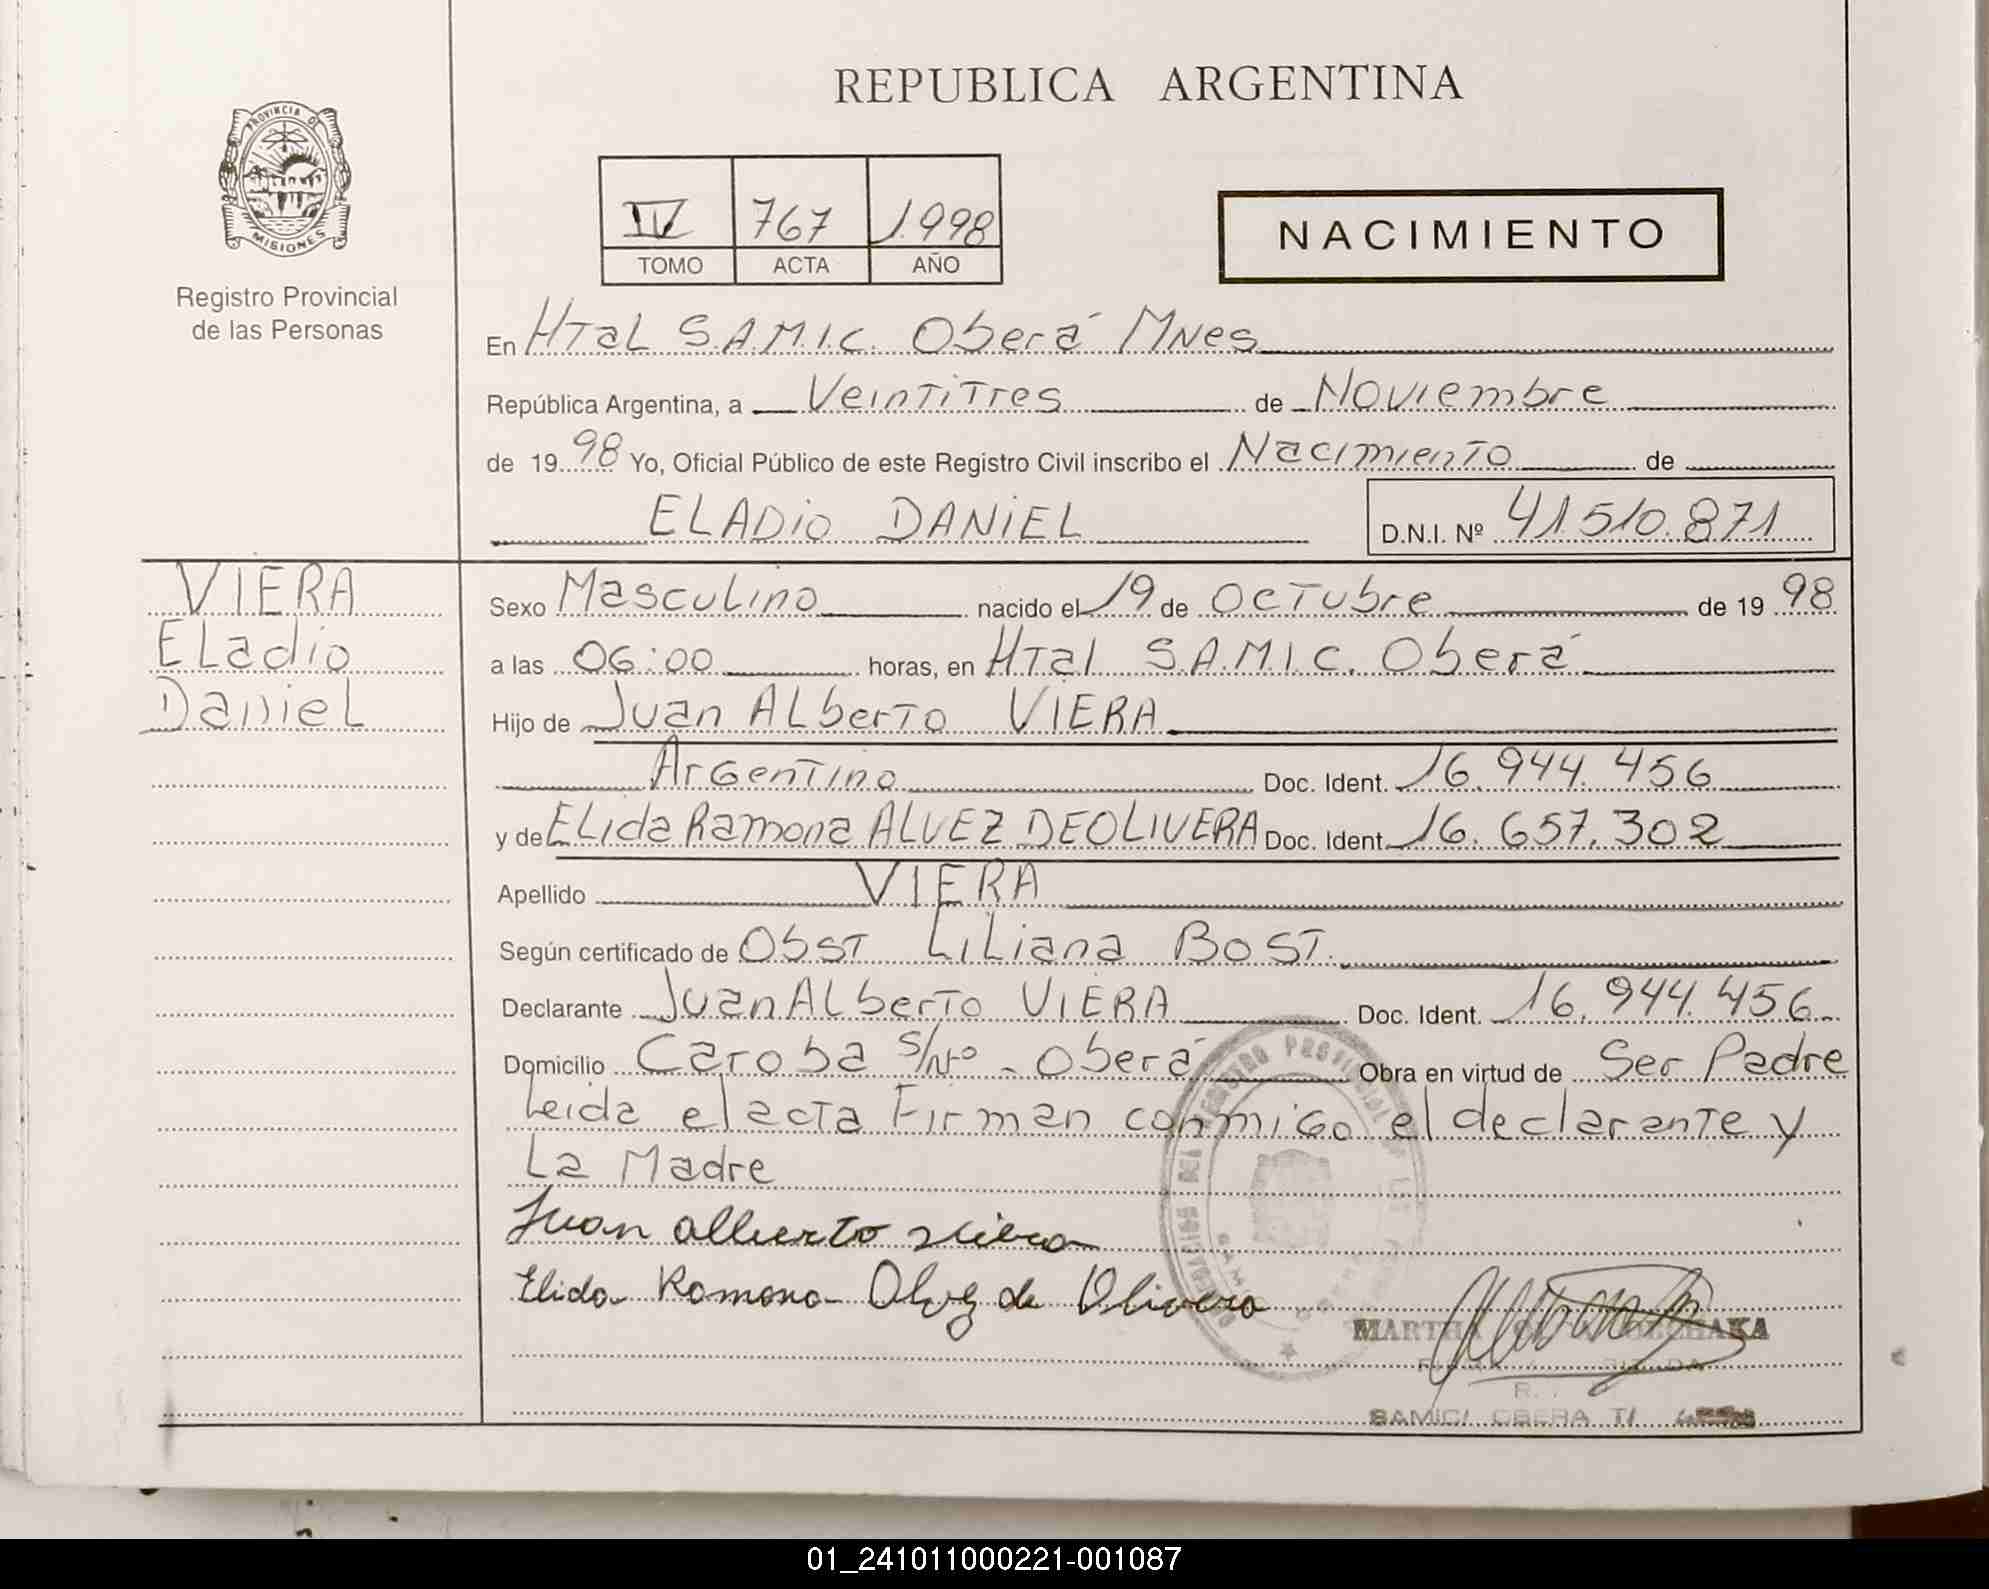 REPUBLICA ARGENTINA
PROVINCIA D
MISIONES
Registro Provincial
de las Personas
IV 767 1.998
TOMO ACTA AÑO
NACIMIENTO
En HTal S.A.M.I.C. Oberá MNes
República Argentina, a VeinTiTres de Noviembre
de 19 98 Yo, Oficial Público de este Registro Civil inscribo el NacimienTo de
ELADiO DANiEL D.N.I. Nº 41.510.871
VIERA
ELadio
DanieL
Sexo MascuLino nacido el 19 de OcTubre de 19 98
a las 06:00 horas, en HTal S.A.M.I.C. Oberá
Hijo de Juan ALberTo VIERA
ArGenTino Doc. Ident. 16.944.456
y de ELida Ramona ALVEZ DEOLIVERA Doc. Ident. 16.657.302
Apellido VIERA
Según certificado de ObsT LiLiana BOST.
Declarante Juan ALberTo VIERA Doc. Ident. 16.944.456
Domicilio Caroba S/Nº - Oberá Obra en virtud de Ser Padre
Leida el acTa Firman conmiGo el declaranTe y
La Madre
Juan alberto viera
Elida Ramona Alvez de Olivera
MARTHA
SAMIC/ OBERA T/
01_241011000221-001087